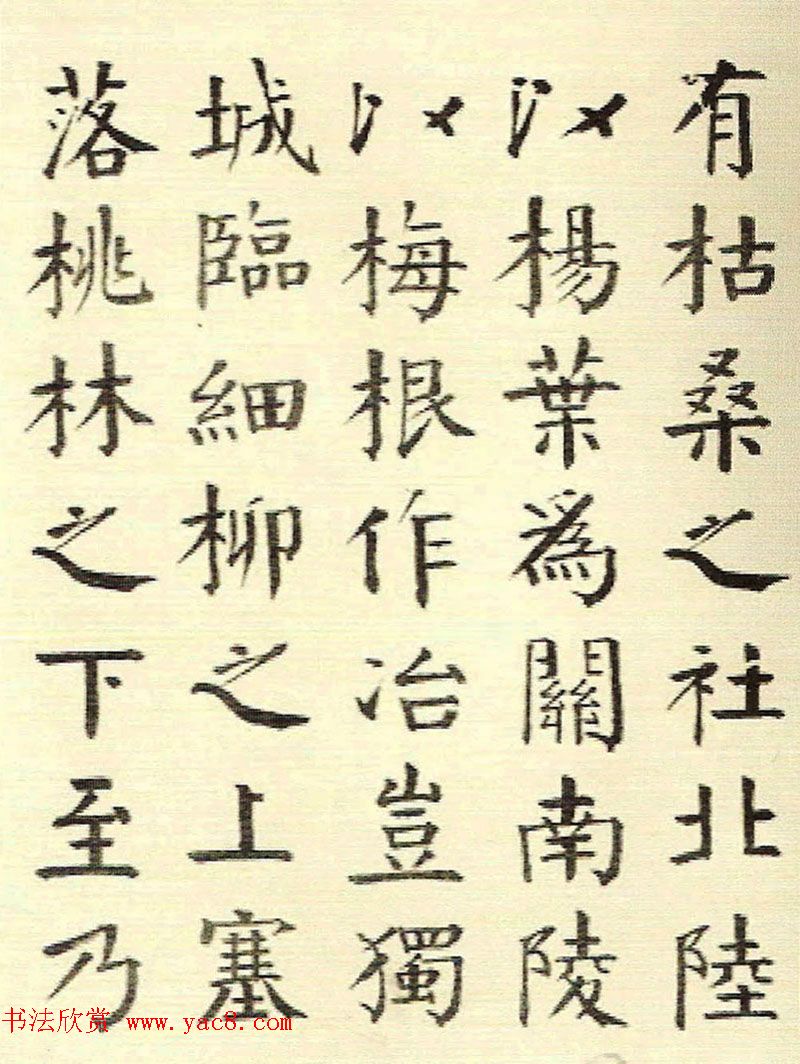 有枯桑之社北陸
以楊葉為關南陵
以梅根作冶豈獨
城臨細柳之上塞
落桃林之下至乃
书法欣赏 www.yac8.com